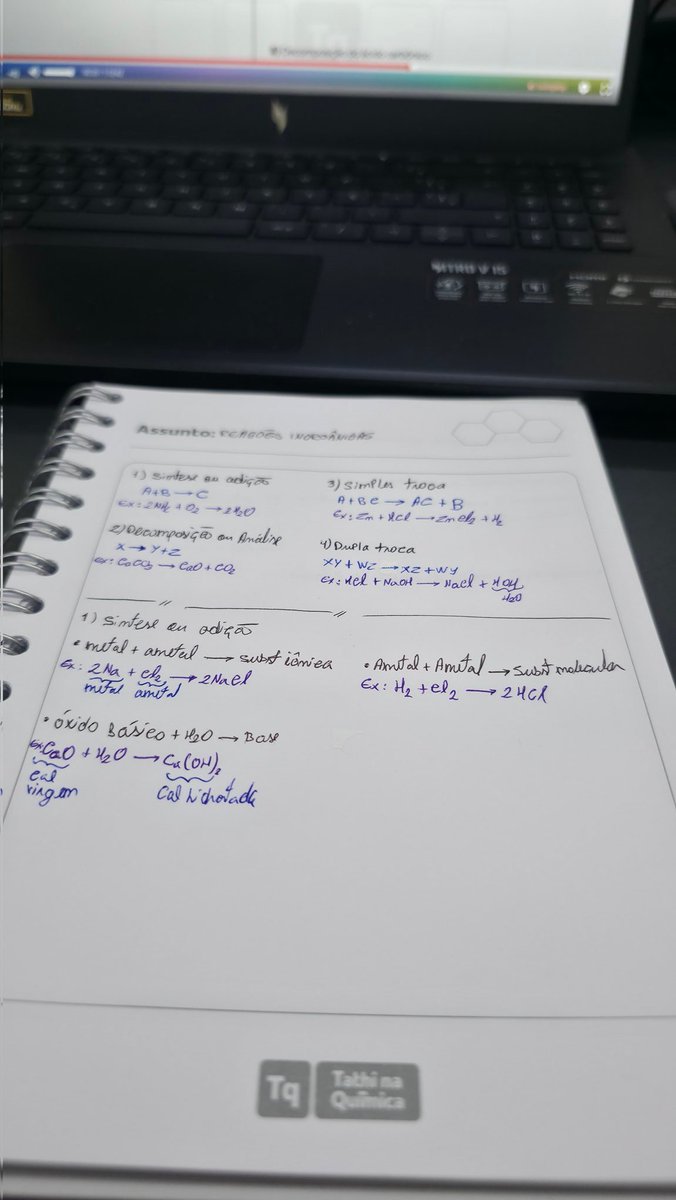 NITRO V 15
Assunto: REAÇÕES INORGÂNICAS
1) Síntese ou adição
A+B → C
Ex: 2H2 + O2 → 2H2O
2) Decomposição ou Análise
X → Y+Z
Ex: CaCO3 → CaO + CO2
3) Simples troca
A + BC → AC + B
Ex: Zn + HCl → ZnCl2 + H2
4) Dupla troca
XY + WZ → XZ + WY
Ex: HCl + NaOH → NaCl + HOH
H2O
1) Síntese ou adição
• metal + ametal → subst iônica
Ex: 2Na + Cl2 → 2NaCl
metal ametal
• Ametal + Ametal → Subst molecular
Ex: H2 + Cl2 → 2HCl
• óxido Básico + H2O → Base
Ex: CaO + H2O → Ca(OH)2
Cal Cal hidratada
virgem
Tq Tathi na
Química